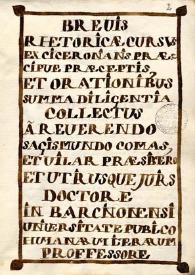 2
BREVIS
RHETORICÆ CURSUS
EX CICERONIANS PRÆ
CIPUE PRÆCEPTIS,
ET ORATIONIBUS
SUMMA DILIGENTIA
COLLECTUS
À REUERENDO
SAGISMUNDO COMAS,
ET UILAR PRÆSBITERO
ET UTRIUSQUE JURIS
DOCTORE
IN BARCHONENSI
UNIUERSITATE PUBLICO
HUMANARU LITERARUM
PROFFESSORE